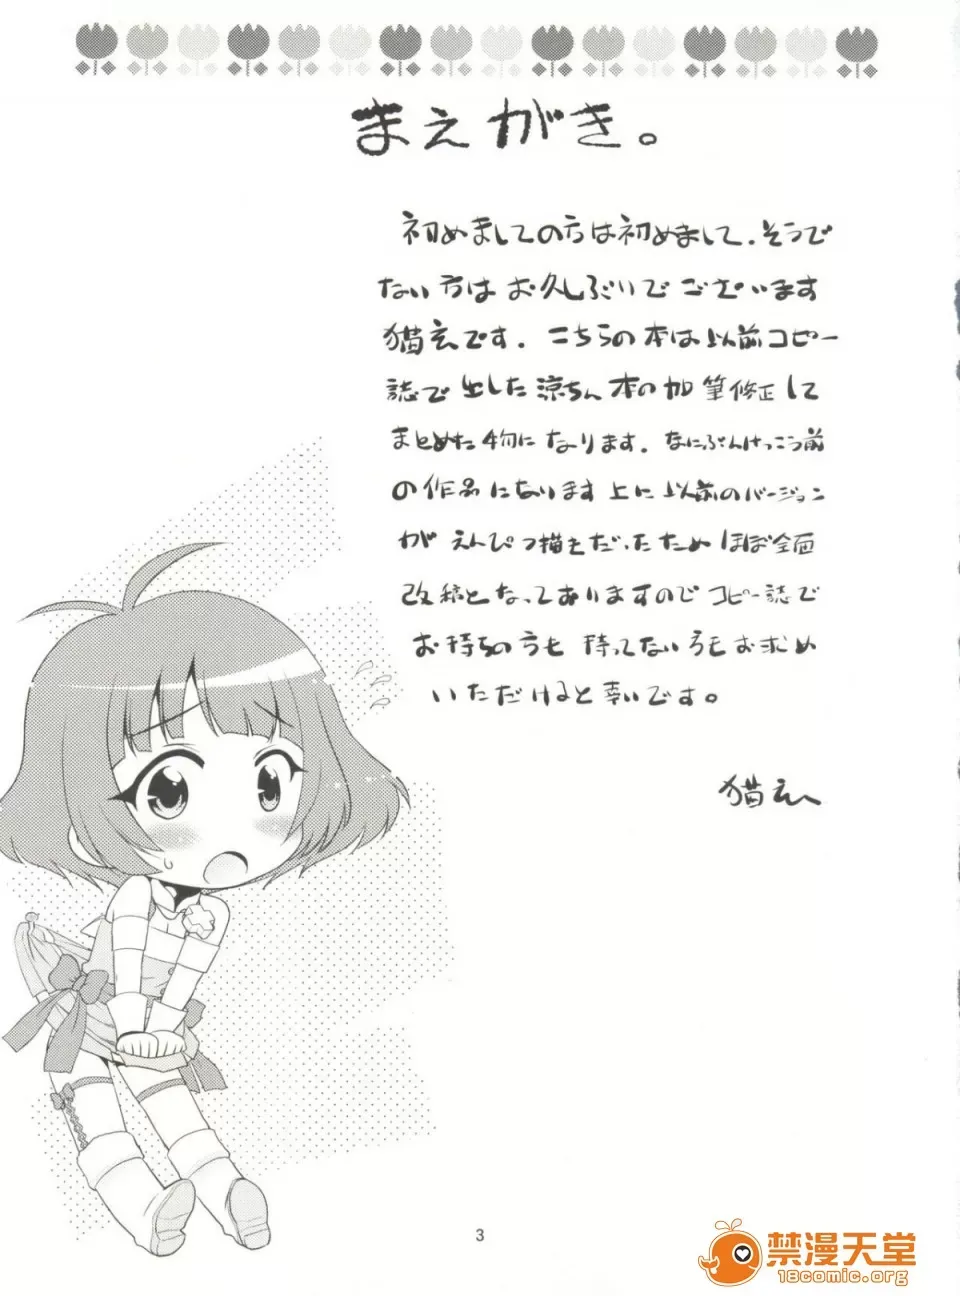 まえがき。
初めましての方は初めまして、そうで
ない方はお久しぶりでございます
猫玄です。こちらの本は以前コピー
誌で出した涼ちん本の加筆修正して
まとめた物になります。なにぶんけっこう前
の作品になります上に以前のバージョン
がえんぴつ描きだったためほぼ全面
改稿となっておりますのでコピー誌で
お持ちの方も持ってない方もお求め
いただけると幸いです。
猫玄
3
禁漫天堂
18comic.org